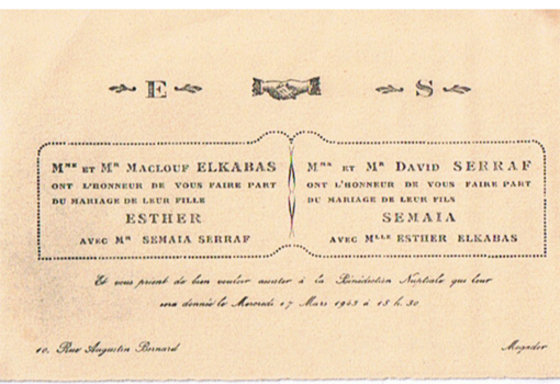 E S
Mme ET Mr MACLOUF ELKABAS
ONT L'HONNEUR DE VOUS FAIRE PART
DU MARIAGE DE LEUR FILLE
ESTHER
AVEC Mr SEMAIA SERRAF
Mme ET Mr DAVID SERRAF
ONT L'HONNEUR DE VOUS FAIRE PART
DU MARIAGE DE LEUR FILS
SEMAIA
AVEC Mlle ESTHER ELKABAS
Et vous prient de bien vouloir assister à la Bénédiction Nuptiale qui leur
sera donnée le Mercredi 17 Mars 1943 à 15 h. 30
10, Rue Augustin Bernard
Mogador